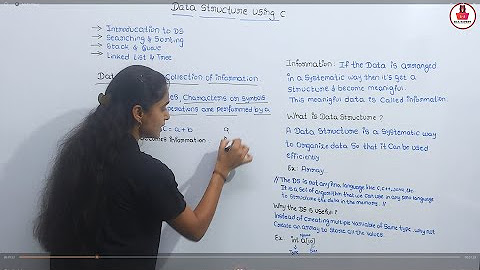 Data Structure Using C
→ Introducation to DS
→ Searching & Sorting
→ Stack & Queue
→ Linked List & Tree
Collection of information
Characters or Symbols
operations are performed by a
= a+b
a
information
Information: If the Data is arranged
in a Systematic way then it's get a
Structure & become meanigful.
This meanigful data is Called Information
What is Data Structure ?
A Data Structure is a Systematic way
to Organize data So that it Can be used
efficiently
Ex: Array
// The DS is not any Prog language like C, C++, Java etc
It is a Set of algorithm that we can use in any Prog language
to Structure the data in the memory. //
Why the DS is Useful ?
Instead of creating multiple Variable of Same type, why not
Create an array to Store all the values
Ex: int a[10]